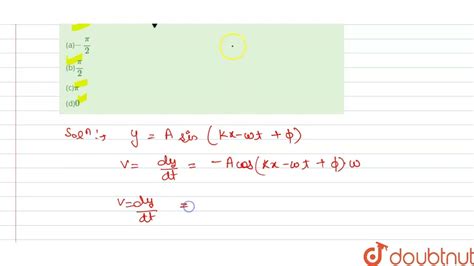 (a) -π/2
(b) π/2
(c) π
(d) 0
Solⁿ:→ y = A sin (kx-ωt + ϕ)
v = dy/dt = -A cos(kx-ωt + ϕ) ω
v = dy/dt =
doubtnut